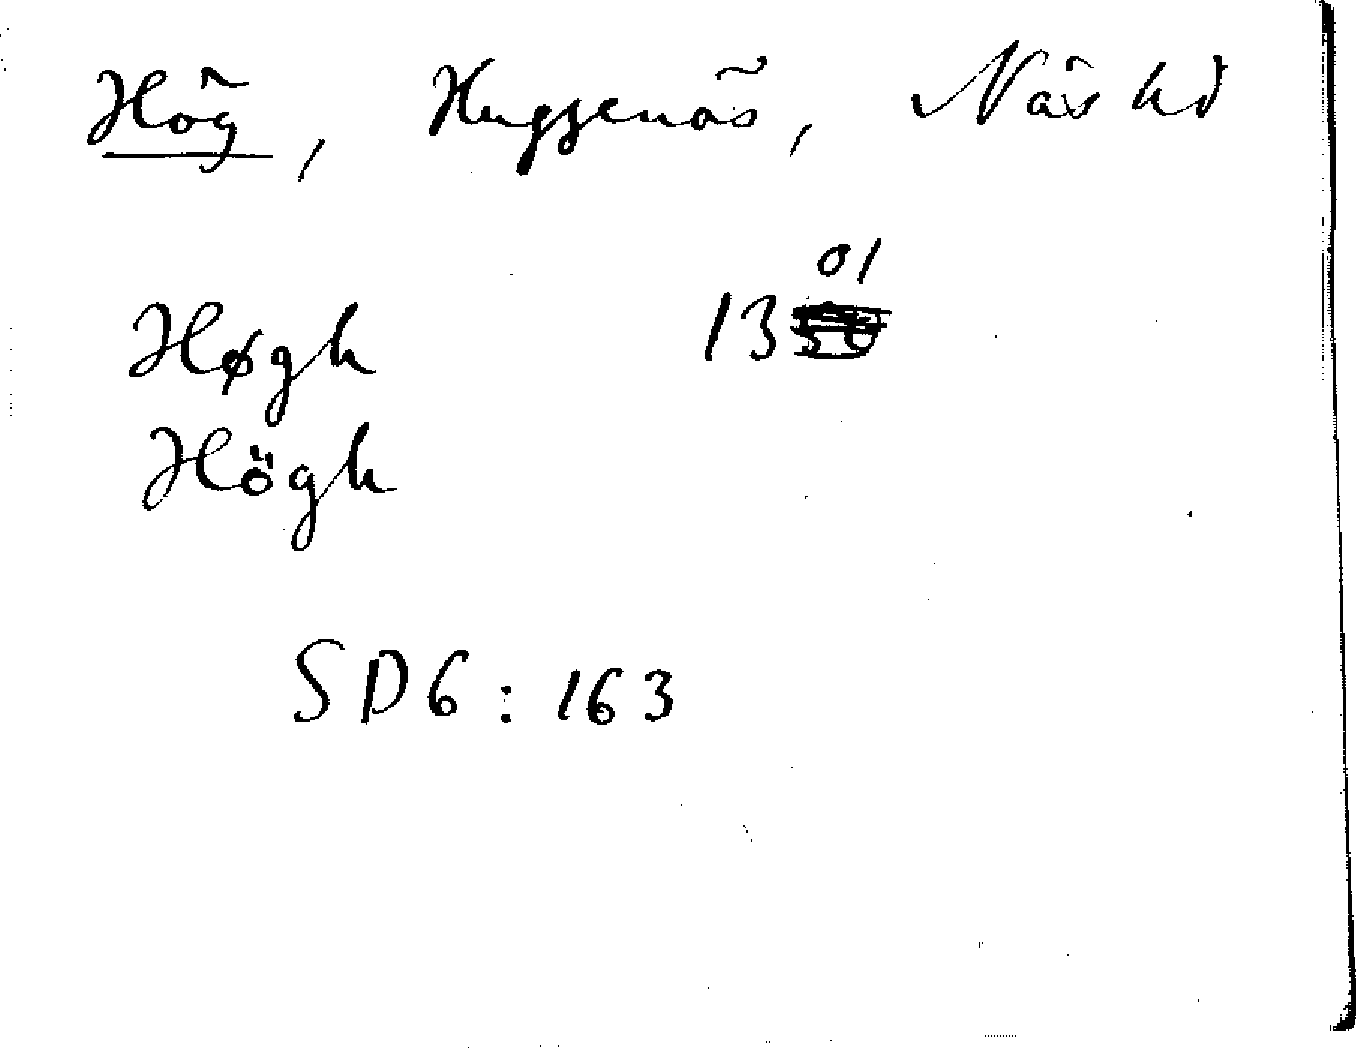 Hög, Huggenäs, Näs hd
Høgh 1301
Högh
SD6:163